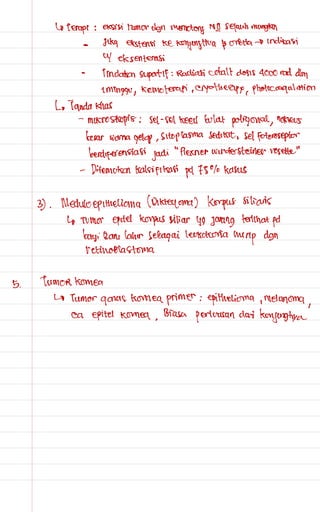 ↳ Terapi : eksisi tumor dgn memotong NII sejauh mungkin
- Jika ekstensi ke konjungtiva & orbita → indikasi
u/ eksenterasi
- Tindakan suportif : Radiasi cobalt dosis 4000 rad dlm
1 minggu, kemoterapi, cryotherapy, photocoagulation
↳ Tanda khas
- mikroskopis : sel-sel kecil bulat poligonal, nukleus
besar warna gelap, sitoplasma sedikit, sel fotoreseptor
berdiferensiasi jadi "flexner wintersteiner rosette"
- Ditemukan kalsifikasi pd 75% kasus
3). Medulo epithelioma (Diktyoma) korpus siliaris
↳ Tumor epitel korpus siliar yg jarang terlihat pd
bayi baru lahir sebagai leukokoria mirip dgn
retinoblastoma
5. Tumor kornea
↳ Tumor ganas kornea primer : epithelioma, melanoma,
ca epitel kornea, Biasa perluasan dari konjungtiva